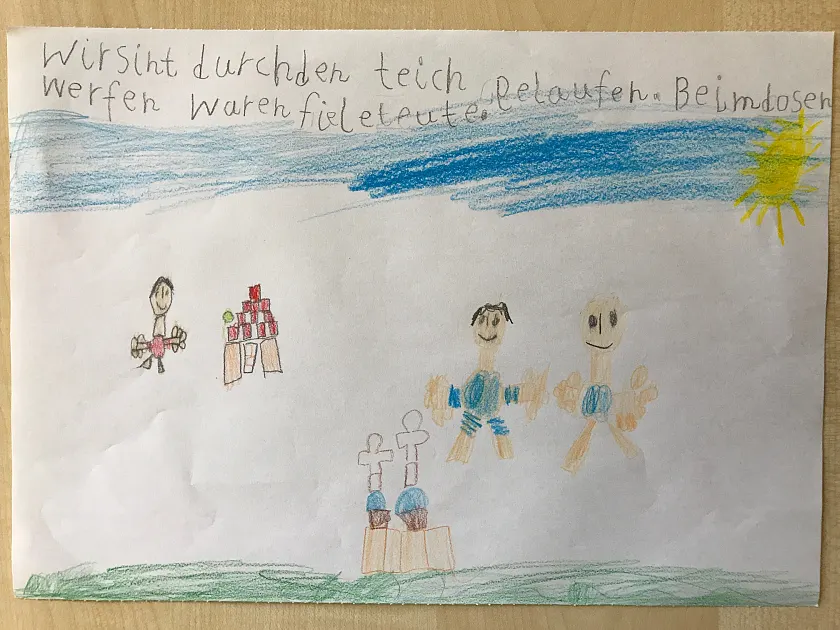 Wirsint durchden teich gelaufen. Beimdosen
werfen waren fieleleute.